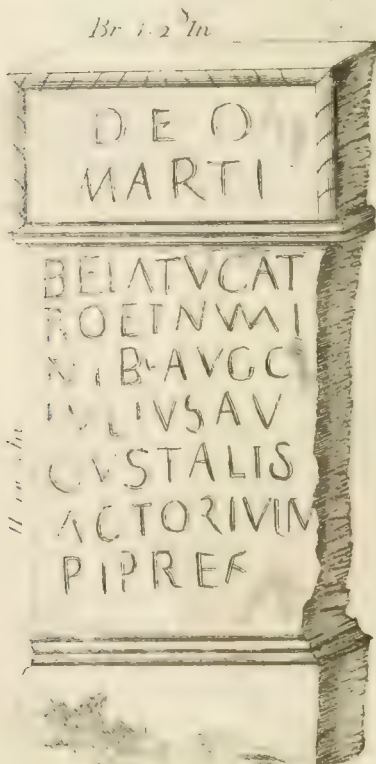 Br 1.2 In
DEO
MARTI
BEIATVCAT
ROETNVMI
NIB AVGC
IVLIVSAV
CVSTALIS
ACTORIVIM
PIPREF